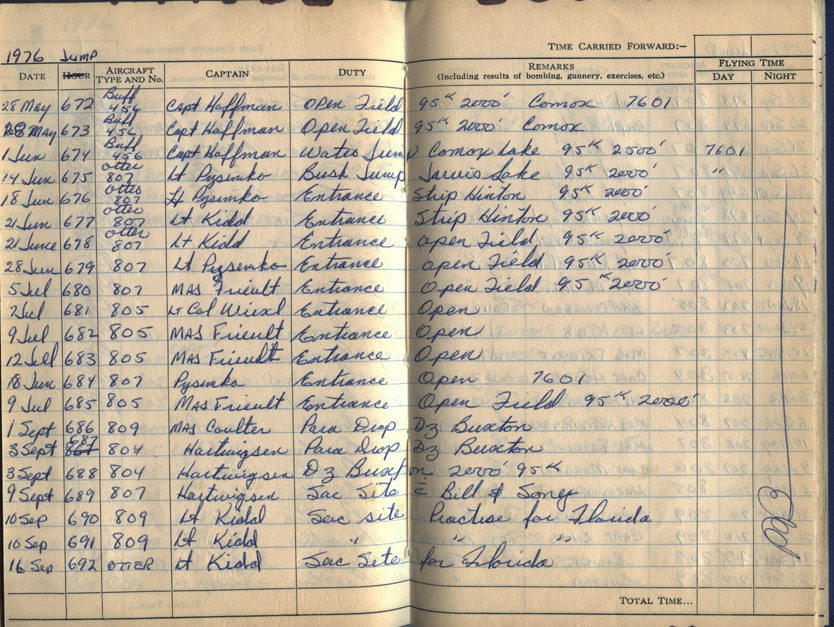 TIME CARRIED FORWARD:-
1976 Jump
DATE HOUR AIRCRAFT TYPE AND No. CAPTAIN DUTY REMARKS (Including results of bombing, gunnery, exercises, etc.) FLYING TIME DAY NIGHT
28 May 672 Buff 456 Capt Hoffman Open Field 95K 2000' Comox 7601
28 May 673 Buff 456 Capt Hoffman Open Field 95K 2000' Comox
1 Jun 674 Buff 456 Capt Hoffman Water Jump Comox Lake 95K 2500' 7601
14 Jun 675 Otter 807 Lt Pysemko Bush Jump Jarvis Lake 95K 2000' "
18 Jun 676 Otter 807 Lt Pysemko Entrance Strip Hinton 95K 2000'
21 Jun 677 Otter 807 Lt Kidd Entrance Strip Hinton 95K 2000'
21 June 678 Otter 807 Lt Kidd Entrance open Field 95K 2000'
28 Jun 679 807 Lt Pysemko Entrance open Field 95K 2000'
5 Jul 680 807 MAS Frieult Entrance Open Field 95K 2000'
7 Jul 681 805 Lt Col Wiexl Entrance Open
9 Jul 682 805 MAS Frieult Entrance Open
12 Jul 683 805 MAS Frieult Entrance Open
18 Jun 684 807 Pysemko Entrance Open 7601
9 Jul 685 805 MAS Frieult Entrance Open Field 95K 2000'
1 Sept 686 809 MAS Coulter Para Drop Dz Buxton
3 Sept 687 804 Hartwigsen Para Drop Dz Buxton
3 Sept 688 804 Hartwigsen Dz Buxton 2000' 95K
9 Sept 689 807 Hartwigsen Sac Site c̄ Bill &
10 Sep 690 809 Lt Kidd Sac Site Practise for Florida
10 Sep 691 809 Lt Kidd " " "
16 Sep 692 OTTER Lt Kidd Sac Site for Florida
TOTAL TIME...